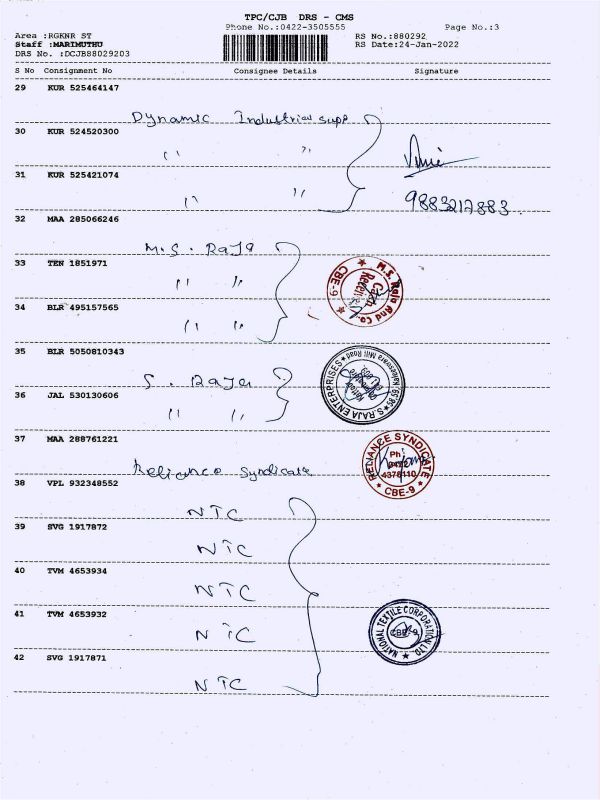 TPC/CJB DRS - CMS
Phone No.:0422-3505555 Page No.:3
Area :RGKNR ST RS No.:880292
Staff :MARIMUTHU RS Date:24-Jan-2022
DRS No. :DCJB88029203
S No Consignment No Consignee Details Signature
29 KUR 525464147
Dynamic Industrial supp
30 KUR 524520300
" "
31 KUR 525421074
" " 9883217883
32 MAA 285066246
M.S. Raja
33 TEN 1851971
" "
M.S. Raja And Co.
CBE-9
34 BLR 495157565
" "
35 BLR 5050810343
S. Raja
36 JAL 530130606
" "
S.RAJA ENTERPRISES
Mill Road
37 MAA 288761221
Reliance Syndicate
RELIANCE SYNDICATE
Ph
0422
4378110
CBE-9
38 VPL 932348552
NTC
39 SVG 1917872
NTC
40 TVM 4653934
NTC
41 TVM 4653932
NTC
NATIONAL TEXTILE CORPORATION LTD
CBE-9
42 SVG 1917871
NTC